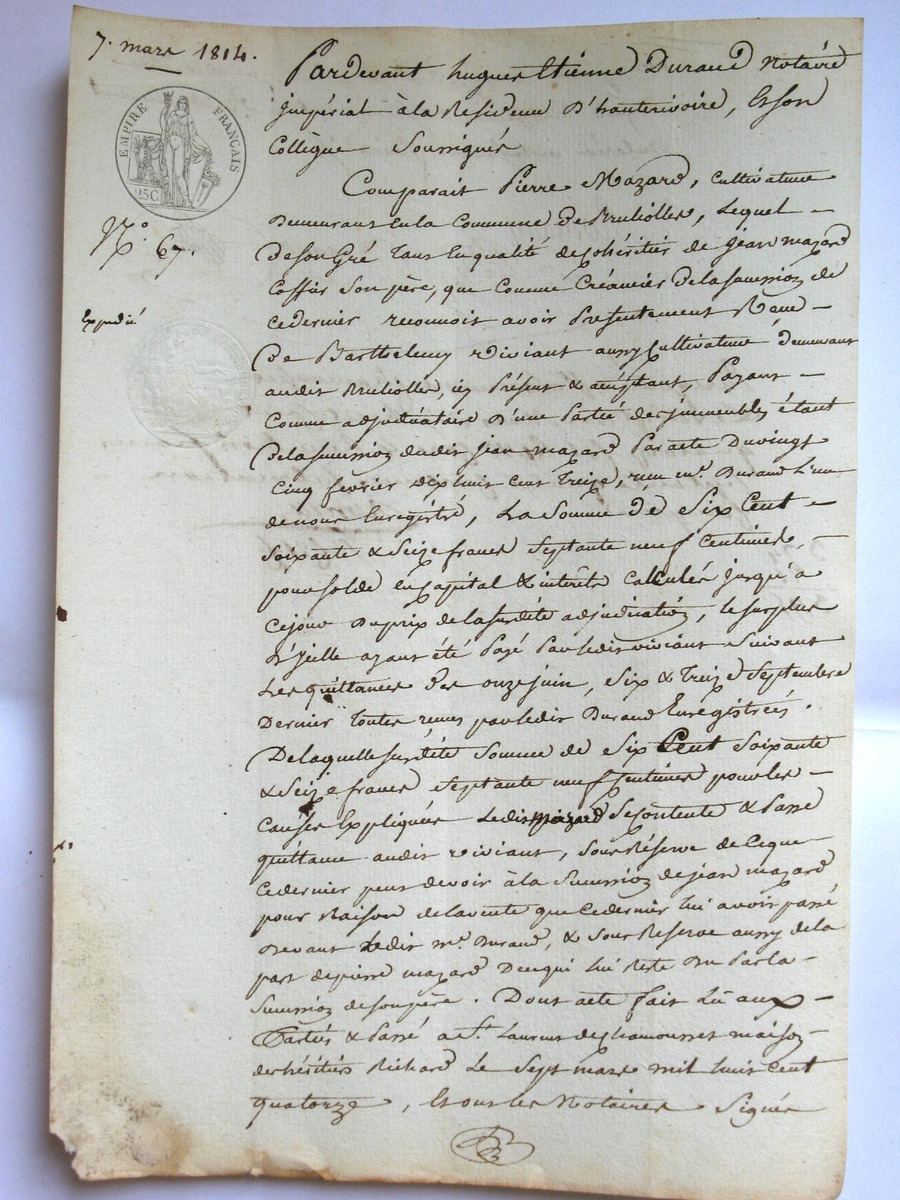 7. mars 1814.
EMPIRE FRANÇAIS
25C
N.° 67.
Expédié
Pardevant hugues Etienne Durand Notaire
Jmpérial à la Residence D'hauterivoire, Et son
Collègue Soussignés
Comparait Pierre Mazard, Cultivateur
Demeurant En la Commune de Brullolles, Lequel
De son Gré Tant En qualité de cohéritié de jean mazard
son père, que Comme Créancier de la succession de
ce dernier reconnoit avoir Présentement Reçu
De Barthelemy viviant aussy Cultivateur demeurant
audit Brullolles, icy Présent & acceptant, Payant
Comme adjudicataire D'une Partié des jmmeubles étant
De la succession dudit jean mazard Par acte Du vingt
Cinq février dix huit Cent Treize, reçu m.e Durand L'un
de nous Enregistré, La Somme de Six Cent
Soixante & Seize francs Septante neuf Centimes,
pour solde en Capital & intérêts Calculés jusqu'à
Ce jour Du prix de la susdite adjudication, le surplus
D'jcelle ayant été Payé Par ledit viviant Suivant
Les quittances des onze juin, Six & Treize Septembre
Dernier Toutes reçues par ledit Durand Enregistrées.
De laquelle susdite Somme de Six Cent Soixante
& Seize francs Septante neuf Centimes pour les
Causes Expliquées Ledit mazard Se Contente & Passe
quittance audit viviant, Sous Réserve de Ce que
Ce dernier peut devoir à la Succession de jean mazard
pour Raison de la vente que Ce dernier lui avoit passé
Devant Ledit m.e Durand, & Sous Reserve aussy de la
part de pierre mazard De ce qui lui Reste Du Par la
Succession de son père. Dont acte fait Lû aux
Partiés & Passé a S.t Laurent de Chamousset maison
des héritiés Richard Le Sept mars mil huit Cent
quatorze, Et ont les Notaires Signés